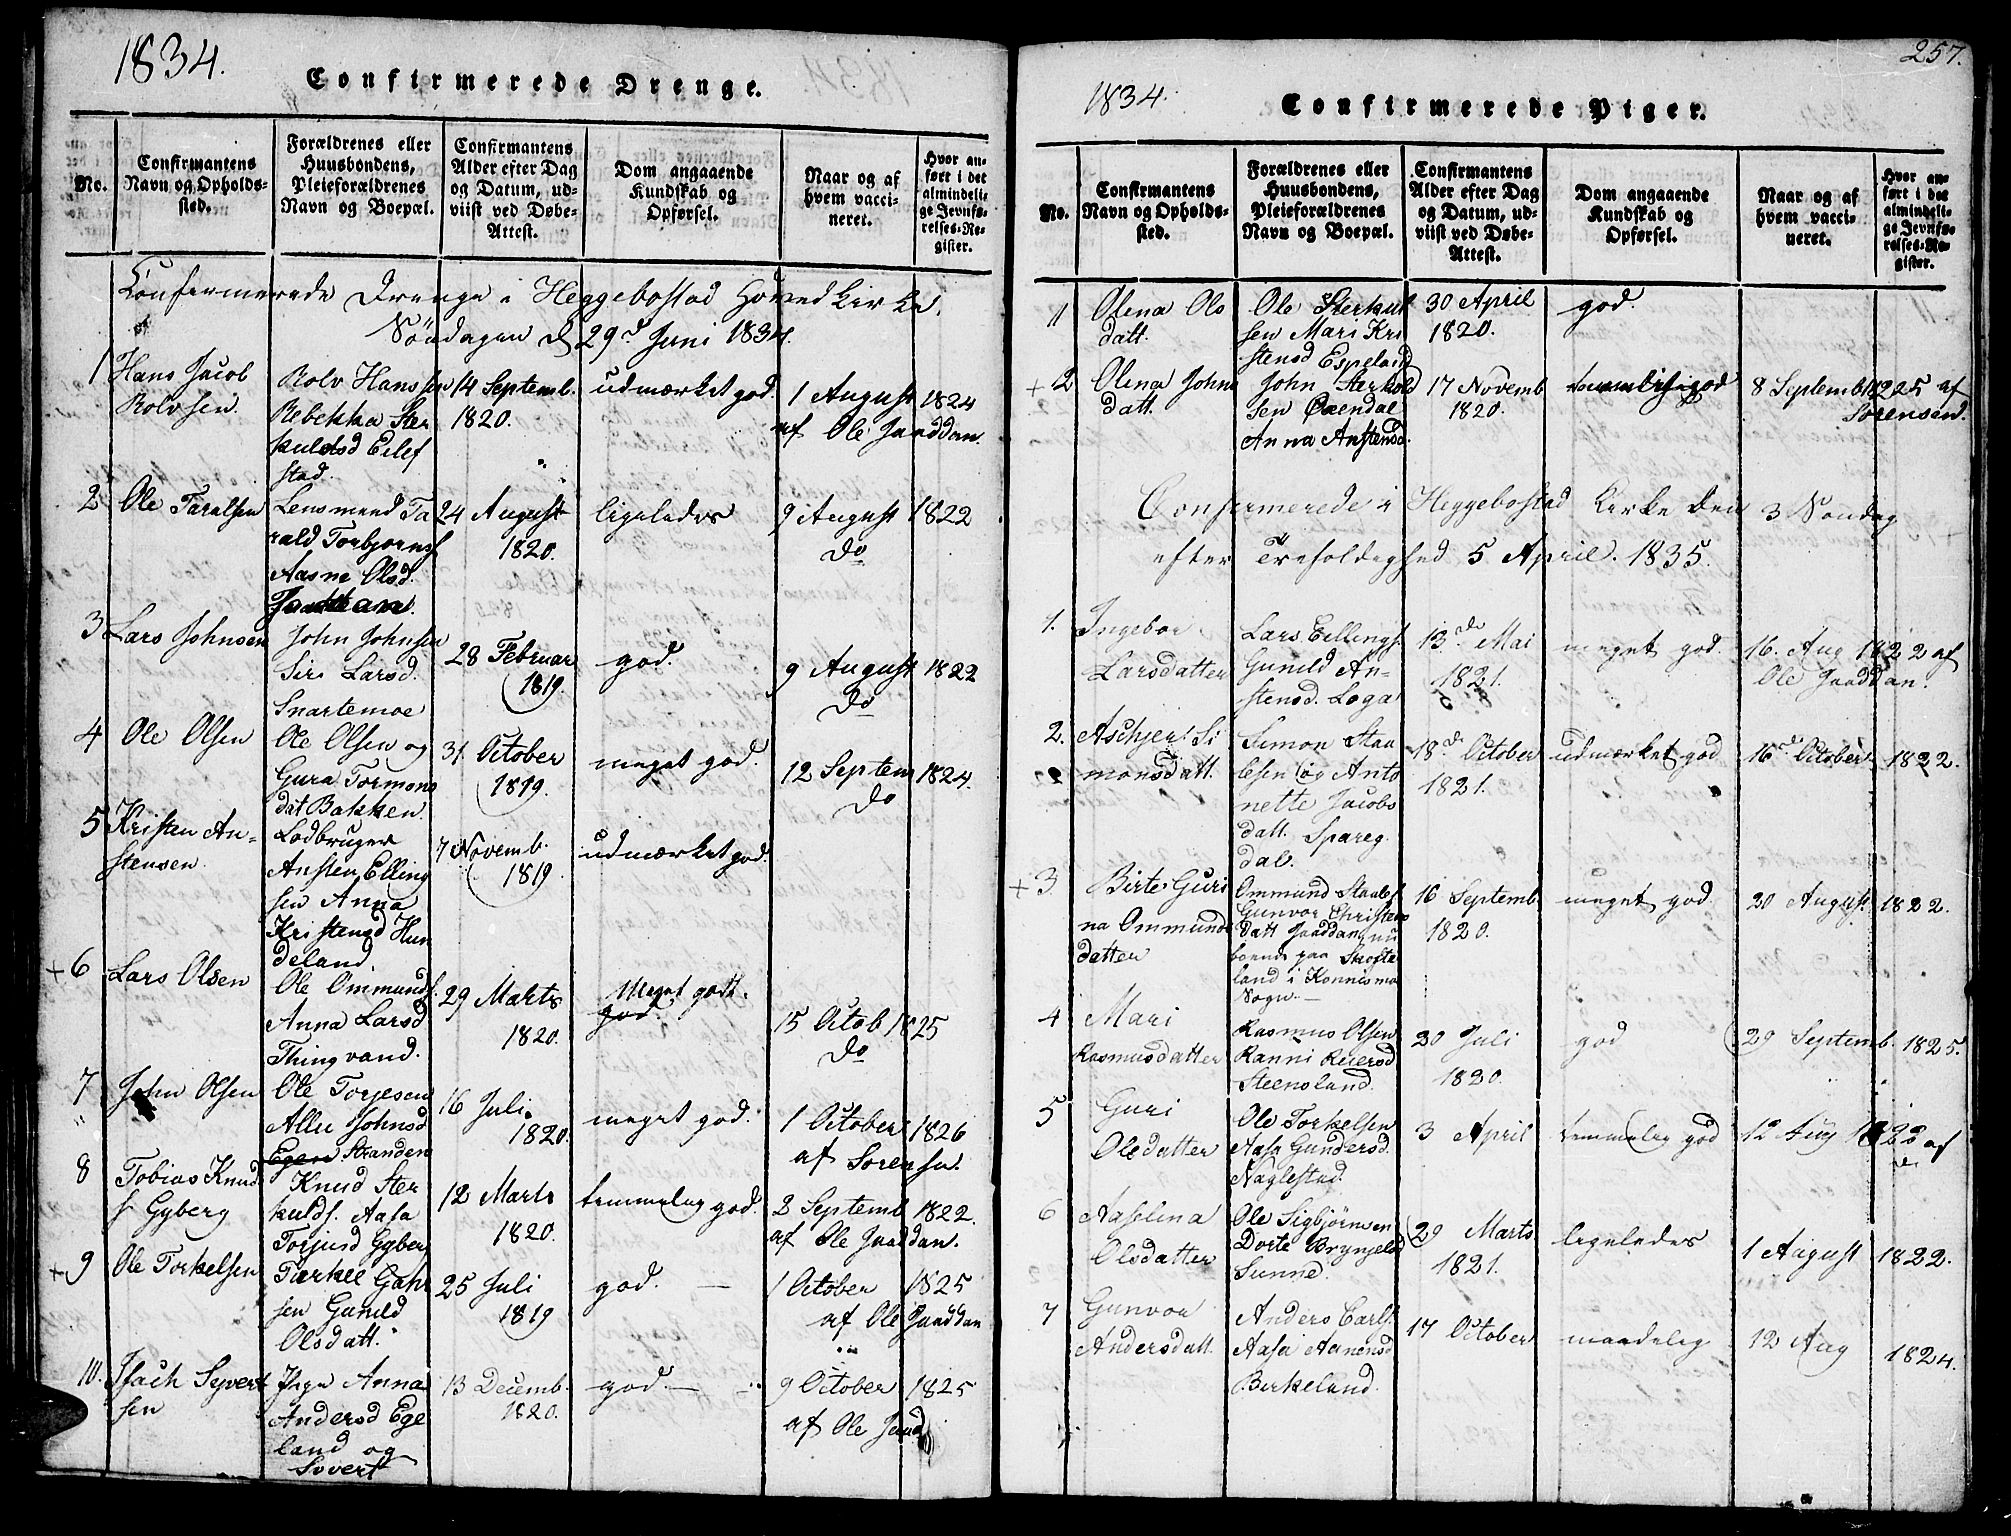 1834.
Confirmerede Drenge.
No.
Confirmantens
Navn og Opholds-
sted.
Forældrenes eller
Huusbondens,
Pleieforældrenes
Navn og Boepæl.
Confirmantens
Alder efter Dag
og Datum, ud-
viist ved Døbe-
Attest.
Dom angaaende
Kundskab og
Opførsel.
Naar og af
hvem vacci-
neret.
Hvor an-
ført i det
almindeli-
ge Jevnfø-
relses-Re-
gister.
Confermerede Drenge i Heggebostad Hovedkirke.
Söndagen d 29d Juni 1834.
1 Hans Jacob
Rolvsen
Rolv Hanssen
Rebekka Ster
kuldsd Eilef
stad.
14 Septemb.
1820.
udmærket god.
1 August 1824
af Ole Jaaddan
2 Ole Taralsen
Lensmand Ta
rald Torbjørns
Aasne Olsd.
Jaaddan.
24 August
1820.
ligeledes
9 August 1822
Do
3 Lars Johnsen
John Johnsen
Siri Larsd.
Snartemoe
28 Februar
1819.
god.
9 August 1822
Do
4 Ole Olsen
Ole Olsen og
Gura Tormons
dat Bakken
31 October
1819.
meget god.
12 Septem 1824.
Do
5 Kristen An-
stensen
Lodbruger
Ansten Elling
sen Anna
Kristensd Hun
deland
7 Novemb.
1819.
udmærket god.
+ 6 Lars Olsen
Ole Ommunds.
Anna Larsd
Thingvand.
29 Marts
1820.
Meget godt.
god
15 Octob 1825
Do
7 John Olsen
Ole Torjesen
Alli Johnsd
Egen Stranden
16 Juli
1820.
meget god.
1 October 1826
af Sorensen.
8 Tobias Knud
s Gyberg
Knud Ster
kulds. Aasa
Torjusd Gyber
12 Marts
1820.
temmeleg god.
2 Septemb 1822.
af Ole Jaaddan.
+ 9 Ole Torkelsen
Tarkel Gahr
sen Gunild
Olsdatt.
25 Juli
1819
god.
1 October 1825
af Ole Jaaddan
10. Isach Syvert
sen
Inga Anna
Andersd Ege
land og
Sivert
13 Decemb.
1820.
god.
9 October 1825
af Ole Jaad
257.
1834.
Confirmerede Piger.
No.
Confirmantens
Navn og Opholds-
sted.
Forældrenes eller
Huusbondens,
Pleieforældrenes
Navn og Boepæl.
Confirmantens
Alder efter Dag
og Datum, ud-
viist ved Døbe-
Attest.
Dom angaaende
Kundskab og
Opførsel.
Naar og af
hvem vacci-
neret.
Hvor an-
ført i det
almindeli-
ge Jevnfø-
relses-Re-
gister.
11 Olena Ols
datt.
Ole Sterkul
sen Mari Kri
stensd Espeland
30 April
1820.
god.
+ 2 Olina Johns
datt.
John Sterkold
sen Øxendal
Anna Anstensd.
17 Novemb
1820.
temmelig god
8 Septemb 1825 af
Sorensen.
Confirmerede i Heggebostad Kirke den 3 Sondag
efter Trefoldighed 5 April. 1835.
1. Ingebor
Larsdatter
Lars Eellings.
Gunild An-
stensd. Loga
13de Mai
1821.
meget god.
16. Aug 1822 af
Ole Jaaddan.
2. Aschjer Si
monsdatt.
Simon Staa
lesen og Anto
nette Jacobs
datt. Spareg
dal.
18de October
1821.
Udmærket god
16de October 1822.
+ 3 Birte Guri
na Ommunds
datter
Ommund Staales
Gunvor Christens
datt Jaaddan, nu
boende paa Skofte
land i Konnismo
Sogn.
16 Septemb
1820.
meget god
20 August 1822.
4 Mari
Rasmusdatter
Rasmus Olsen
Ranni Reiersd
Steensland.
20 Juli
1820.
god
29 Septemb. 1825.
5 Guri
Olsdatter
Ole Torkelsen
Aasa Gundersd.
Naglestad.
3 April
temmeleg god
12 Aug 1822 af
6 Aaselina
Olsdatter
Ole Sigbjörnsen
Dorte Brynjelsd
Sunne.
29 Marts
1821.
legeledes
1 August 1822.
7 Gunvor
Andersdatt.
Anders Carls.
Aasa Aanensd
Birkeland.
17 October
maadeleg
12 Aug 1824.